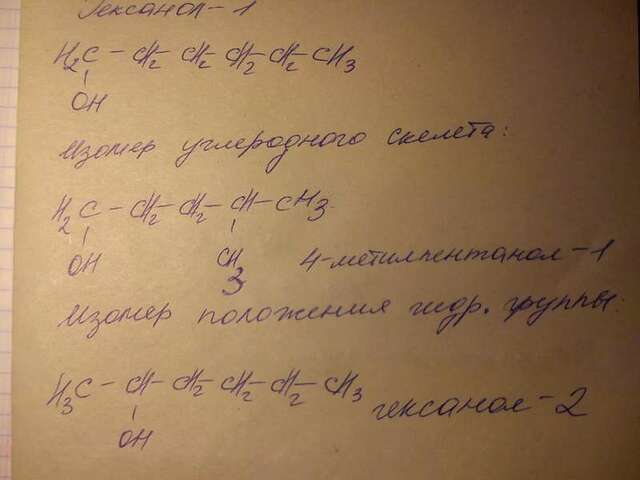 Гексанол-1
H₂C - CH₂ - CH₂ - CH₂ - CH₂ - CH₃
OH
Изомер углеродного скелета:
H₂C - CH₂ - CH₂ - CH - CH₃
OH CH₃ 4-метилпентанол-1
Изомер положения гидр. группы:
H₃C - CH - CH₂ - CH₂ - CH₂ - CH₃ гексанол-2
OH